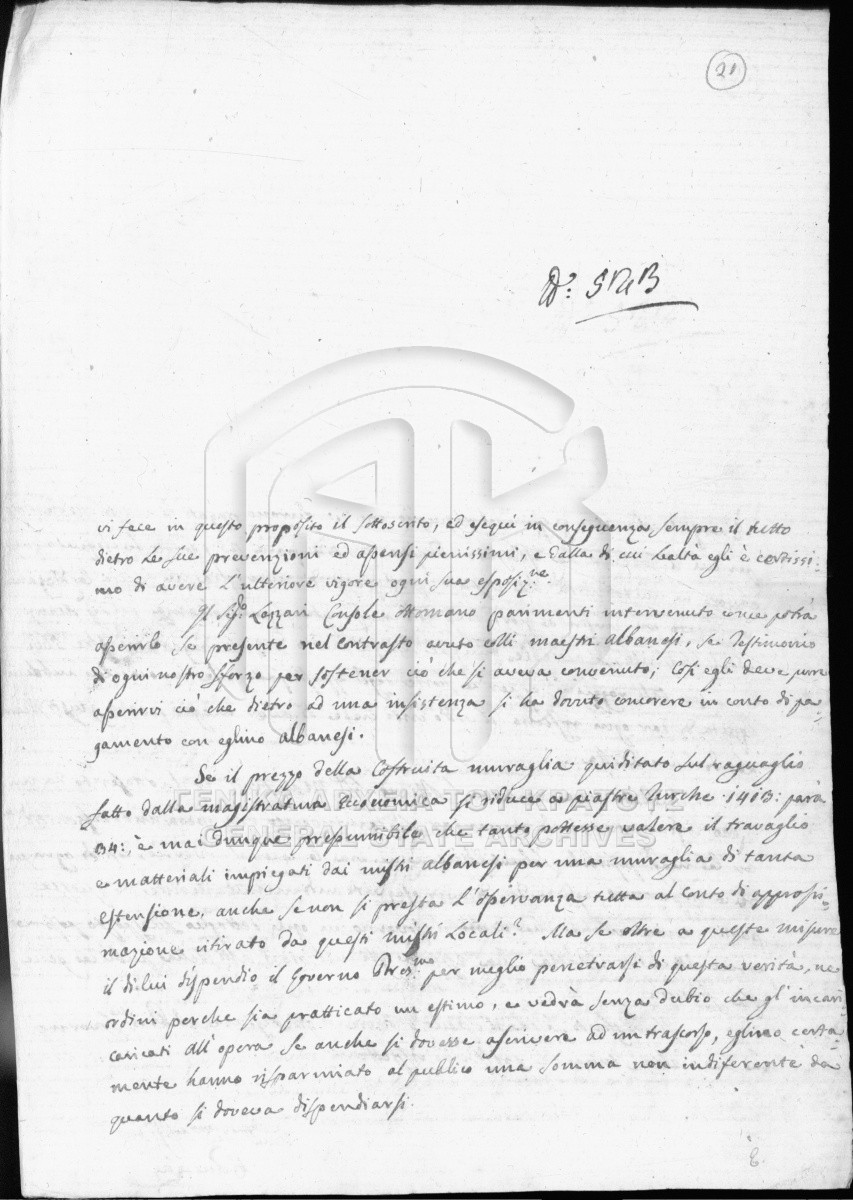 21
vi fece in questo proposito il sottoscrito, ed esequì in conseguenza sempre il tutto
dietro le sue prevenzioni ed assensi pienissimi, e dalla di cui Lealtà egli è certissi=
mo di avere l'ulteriore vigore ogni sua esposiz:ne
Il Sigr Lazzari Console Ottomano parimenti intervenuto come potrà
asserirlo se presente nel contrasto avuto colli maestri albanesi, se Testimonio
di ogni nostro sforzo per sostener ciò che si aveva convenuto; Così egli deve pure
asserirvi ciò che dietro ad una insistenza si ha dovuto concorere in conto di pa=
gamento con eglino albanesi.
Se il prezzo della Costruita muraglia quiditato sul raguaglio
fatto dalla magistratura Economica si riduce a piastre Turche 1413: parà
34:, è mai dunque presumibile che tanto potesse valere il travaglio
e matteriali impiegati dai mistri albanesi per una muraglia di tanta
estensione, anche se non si presta l'osservanza tutta al conto di aprossi=
mazione ritirato da questi mistri Locali? Ma se oltre a queste misure
il di lui dispendio il Governo Pres:mo per meglio penetrarsi di questa verità, ne
ordini perche sia pratticato un estimo, e vedrà senza dubio che gl'incari
caricati all'opera se anche si dovesse ascrivere ad un trascorso, eglino certa=
mente hanno risparmiato al publico una somma non indiferente da
quanto si doveva dispendiarsi.
ΓΕΝΙΚΑ ΑΡΧΕΙΑ ΤΟΥ ΚΡΑΤΟΥΣ
GENERAL STATE ARCHIVES